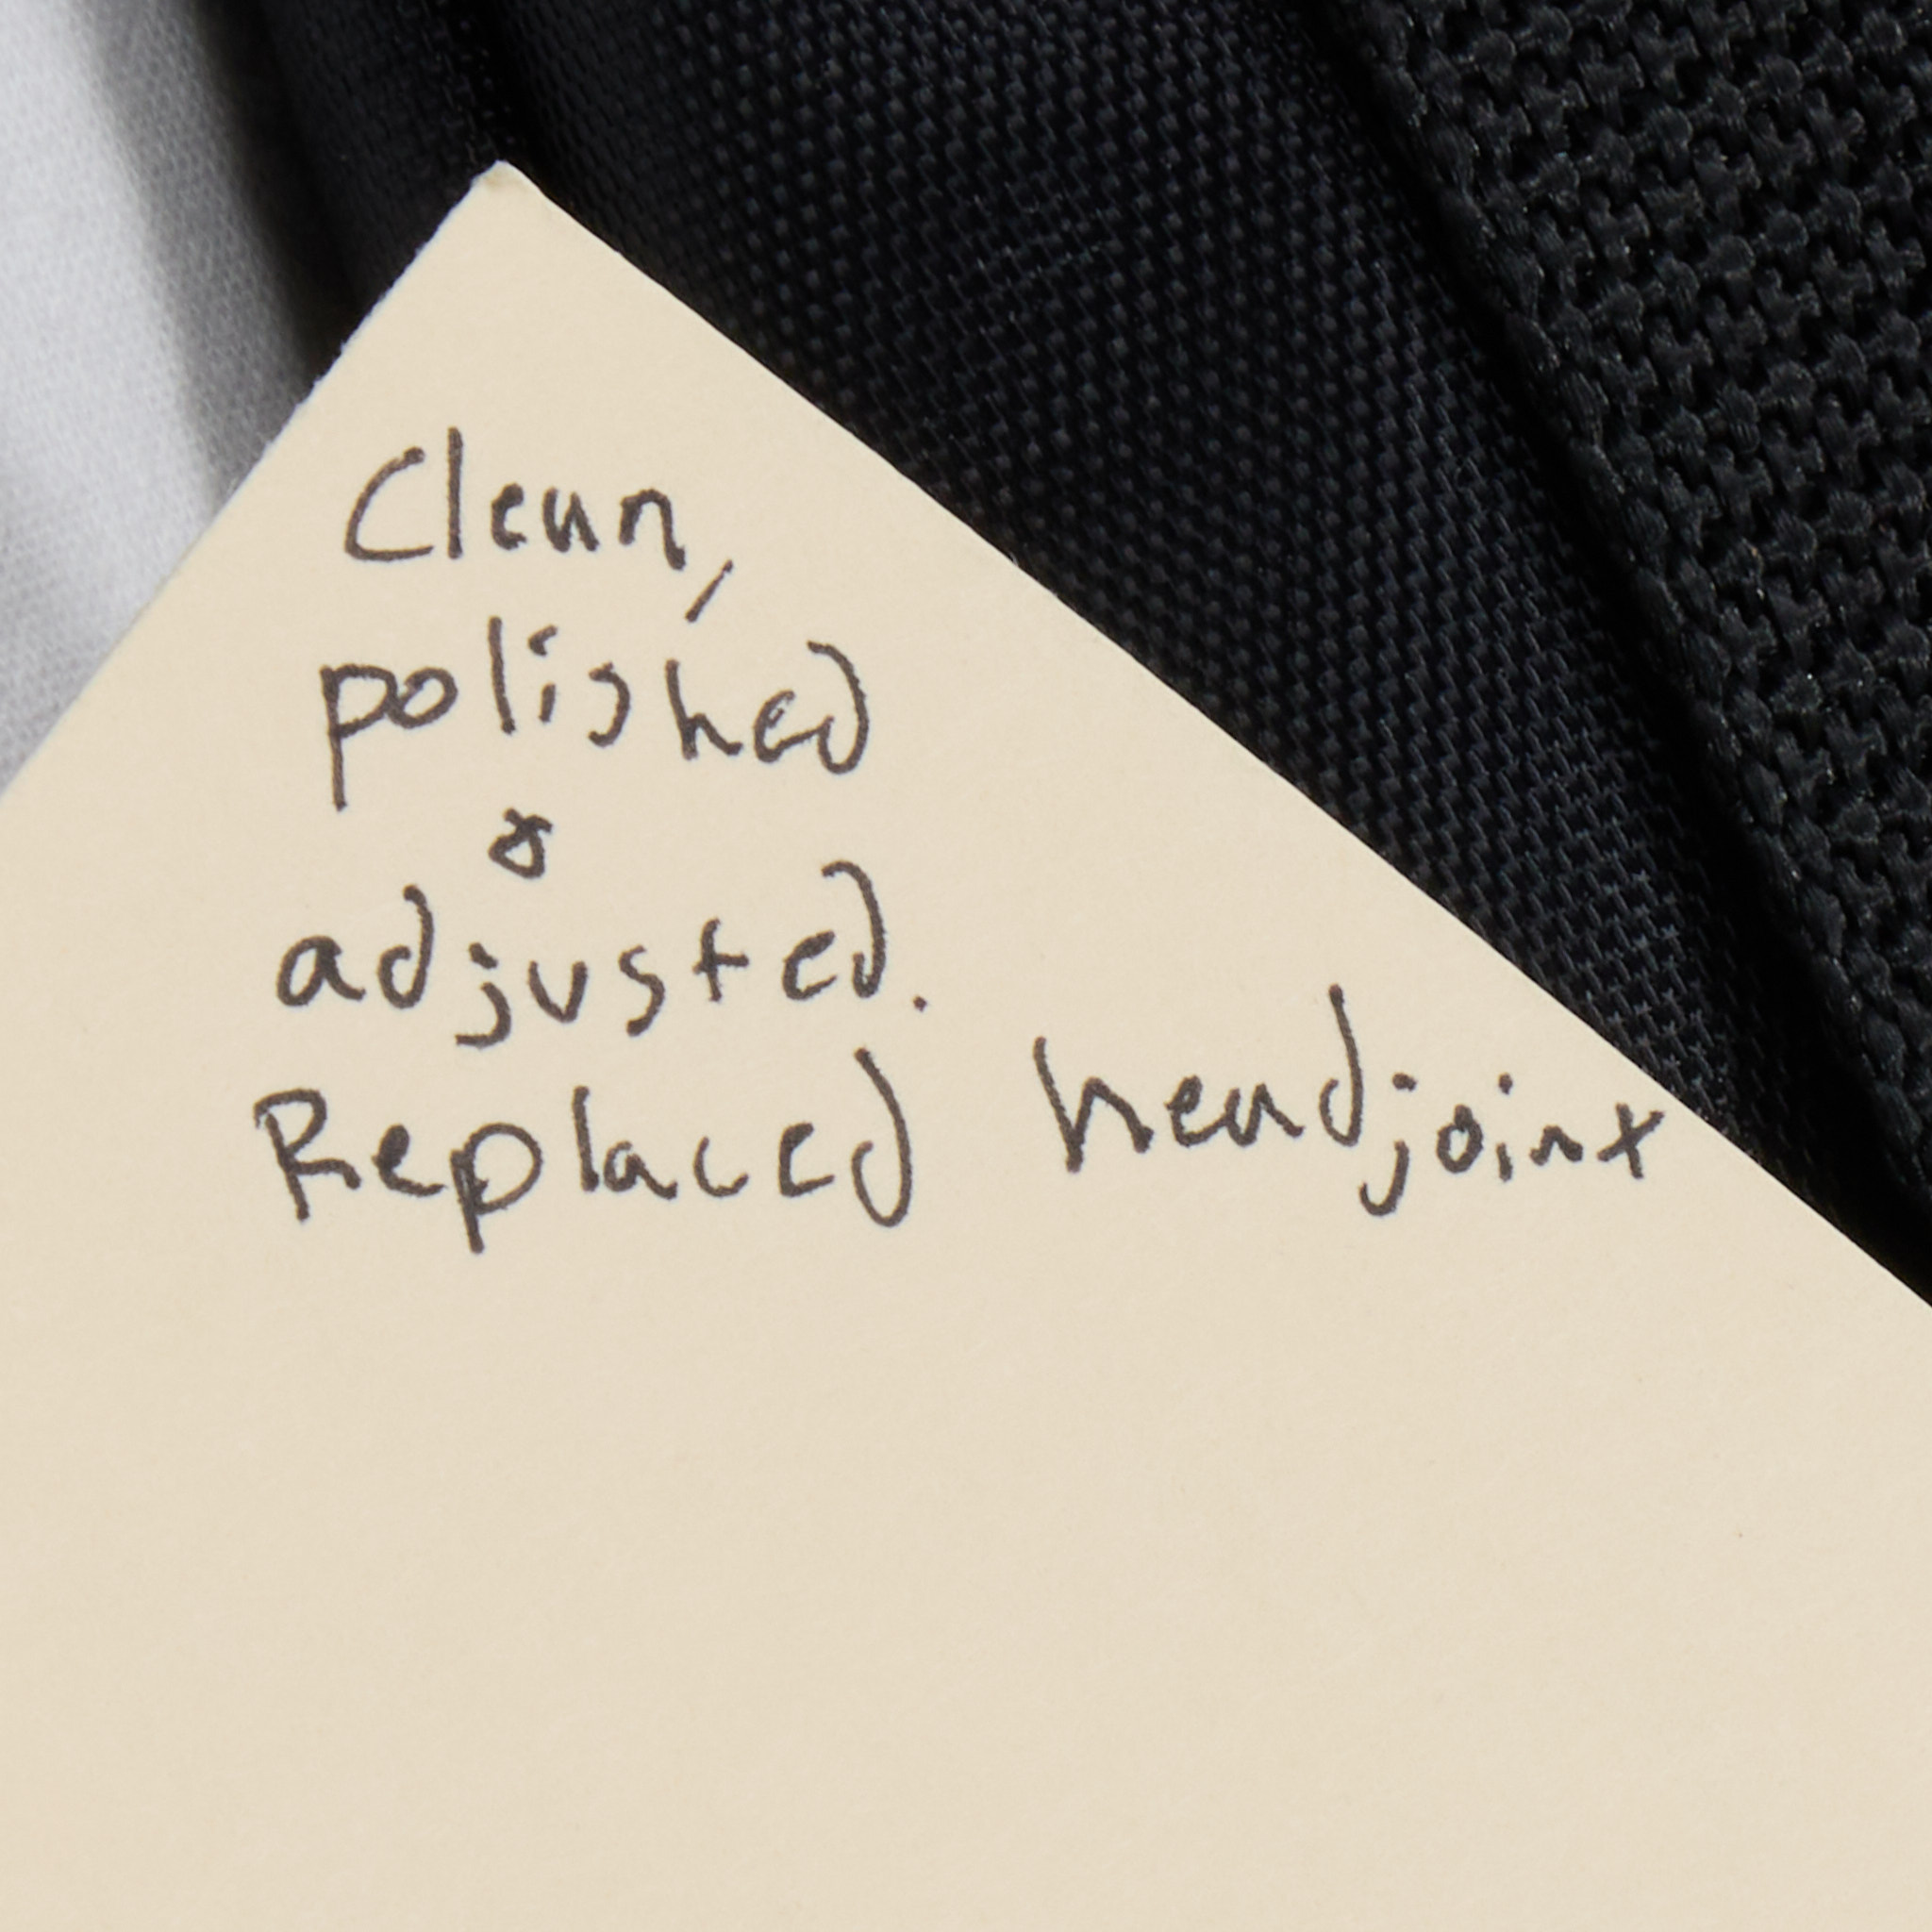 Clean,
polished
&
adjusted.
Replaced headjoint